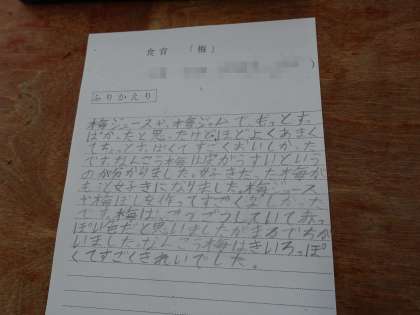 食育 「梅」
)
ふりかえり
梅ジュースや、梅ジャムで、もっとす
ぱかったと思ったけどほどよくあまく
てちょっとすっぱくてすごくおいしかった
です。なんこう梅は皮がうすいという
のが分かりました。好きだった梅が
もっと好きになりました。梅ジュース
や梅ぼしを作ってすごく楽しかった
です。梅は、ごつごつしていて赤っ
ぽい色だと思いましたがまるでちが
いました。なんこう梅はきいろっぽ
くてすごくきれいでした。